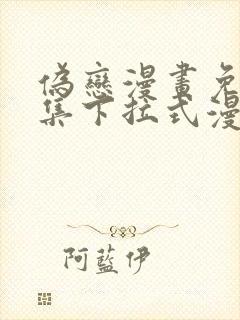 偽戀漫畫免
集下拉式漫
阿藍伊